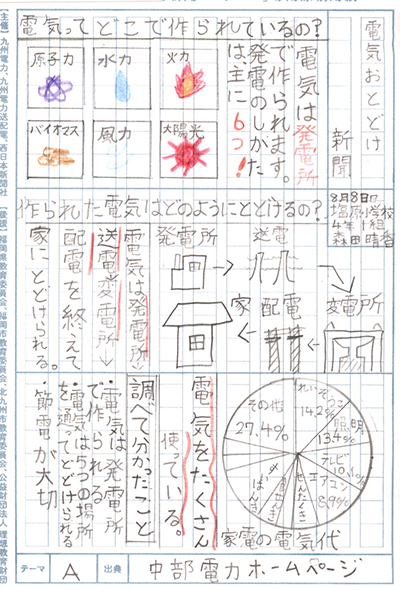 電気おとどけ
新聞
電気ってどこで作られているの?
電気は発電所
で作られます。
発電のしかた
は、主に6つ!
火力
水力
原子力
太陽光
風力
バイオマス
8月8日
塩原小学校
4年1組
森田晴香
作られた電気はどのようにとどけるの?
発電所
送電
変電所
配電
家
電気は発電所↓
送電→変電所↓
配電を終えて
家にとどけられる。
れいぞうこ
14.2%
照明
13.4%
テレビ
10.1%
エアコン
8.9%
その他
27.4%
家電の電気代
電気をたくさん
使っている。
調べて分かったこと
・電気は発電所
で作られる
・電気は5つの場所
を通ってとどけられる
・節電が大切
テーマ
A
出典
中部電力ホームページ
【主催】九州電力、九州電力送配電、西日本新聞社 【後援】福岡県教育委員会、福岡市教育委員会、北九州市教育委員会、公益財団法人 理想教育財団